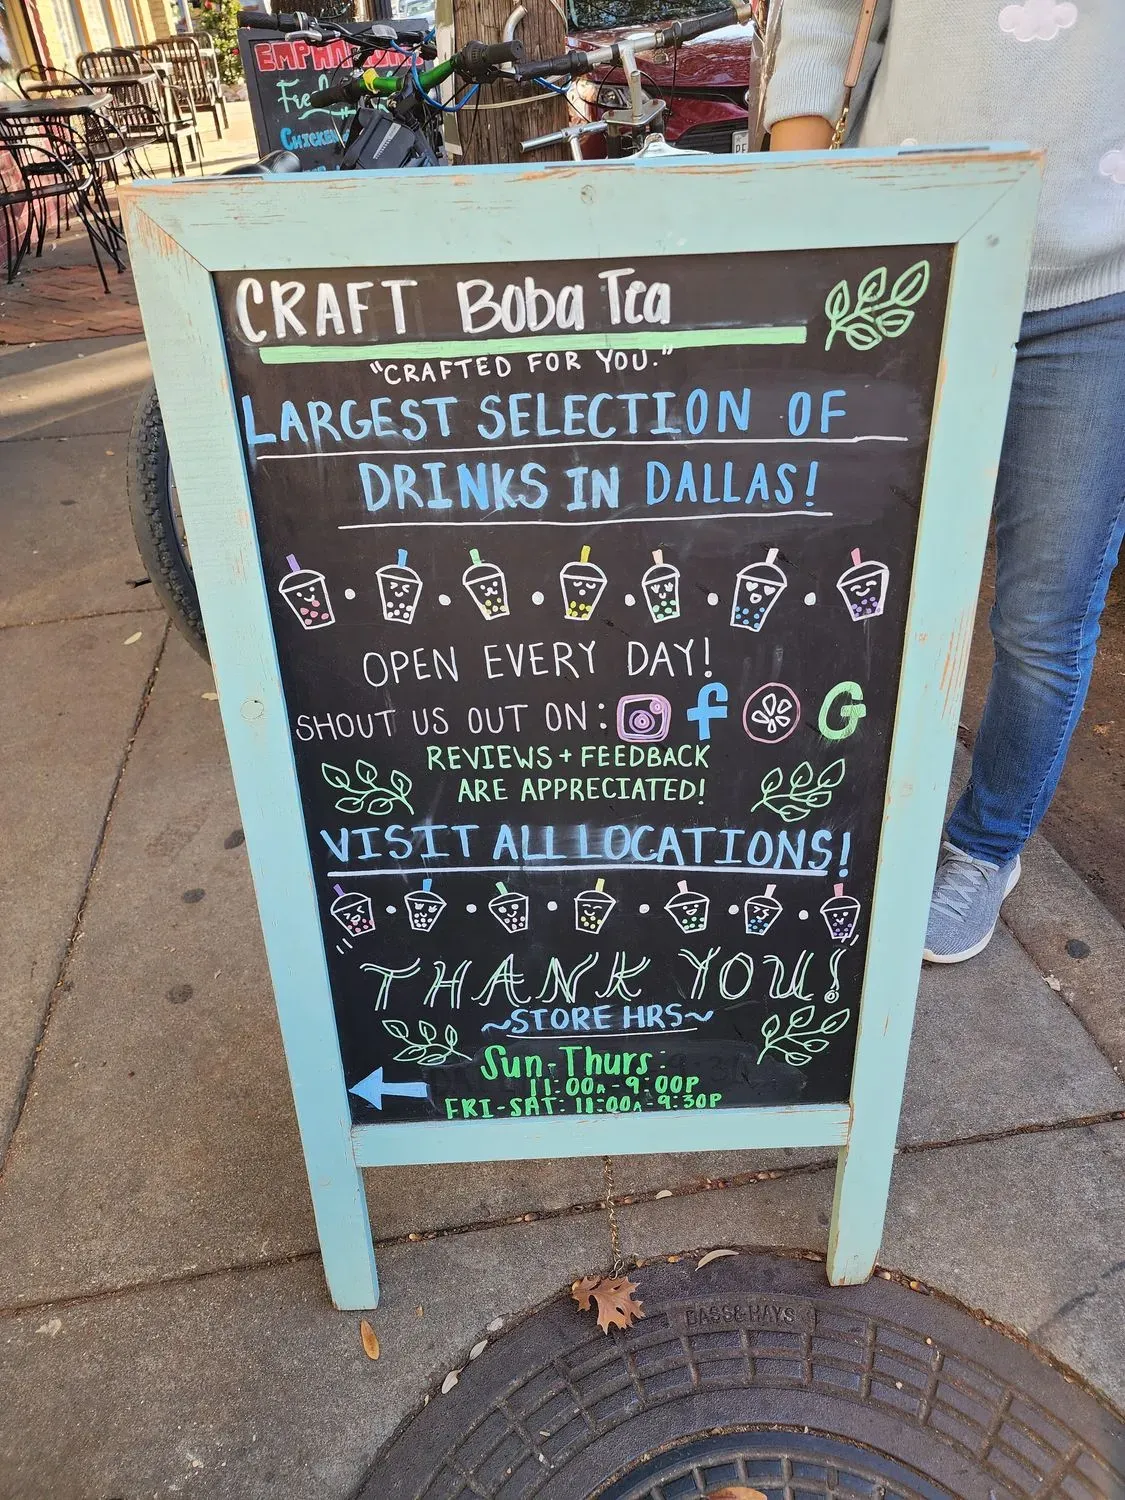 EMPANADAS
CRAFT Boba Tea
"CRAFTED FOR YOU."
LARGEST SELECTION OF
DRINKS IN DALLAS!
OPEN EVERY DAY!
SHOUT US OUT ON:
REVIEWS + FEEDBACK
ARE APPRECIATED!
VISIT ALL LOCATIONS!
THANK YOU!
~STORE HRS~
Sun-Thurs:
11:00A-9:00P
FRI-SAT: 11:00A-9:30P
BASS&HAYS